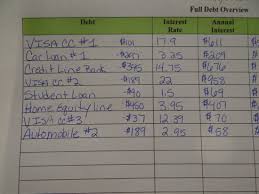 Full Debt Overview
Debt Interest Rate Annual Interest
VISA CC #1 $101 17.9 $611
Car Loan #1 3.25 $209
Credit Line Bank $395 14.75 $676
VISA CC #2 $189 22 $958
Student Loan $90 1.5 $69
Home Equity line $450 3.95 $407
VISA CC #3 $37 12.39 $70
Automobile #2 $189 2.95 $58